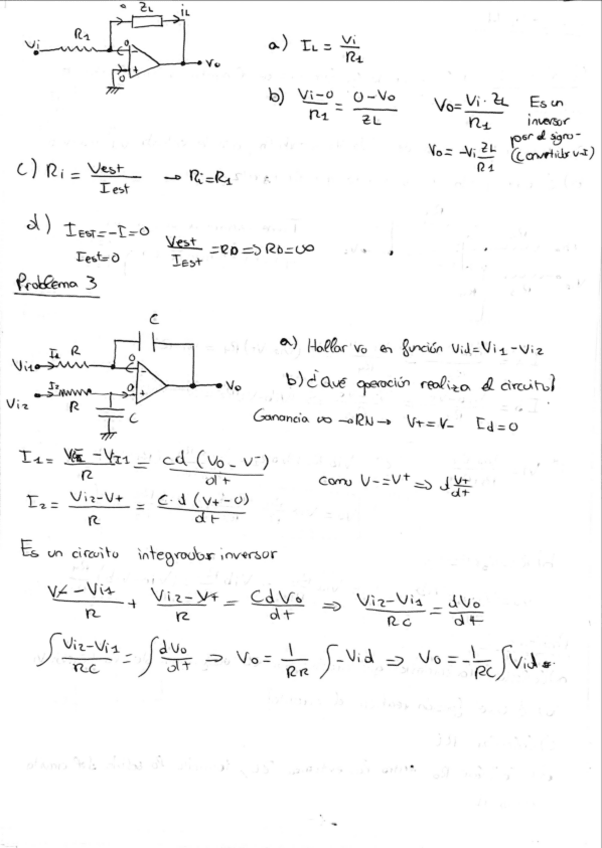 ZL iL
R1
Vi
Vo
a) IL = Vi/R1
b) (Vi-0)/R1 = (0-Vo)/ZL Vo = Vi·ZL/R1 Es un inversor por el signo-
Vo = -Vi ZL/R1 (Convertidor V-I)
c) Ri = Vest/Iest → Ri=R1
d) IEST=-I=0
Iest=0 Vest/IEST = RO => RO=∞
Problema 3
C
I1 R
Vi1
I2
Vi2
R
C
Vo
a) Hallar vo en función Vid=Vi1-Vi2
b) ¿Qué operación realiza el circuito?
Ganancia ∞ → RN → V+=V- Id=0
I1 = (V- - VI1)/R = cd (Vo - V-)/dt
como V-=V+ => d V+/dt
I2 = (Vi2-V+)/R = C·d (V+-0)/dt
Es un circuito integrador inversor
(V- - Vi1)/R + (Vi2-V+)/R = CdVo/dt => (Vi2-Vi1)/RC = dVo/dt
∫(Vi2-Vi1)/RC = ∫dVo/dt => Vo = 1/RR ∫-Vid => Vo = -1/RC ∫Vid